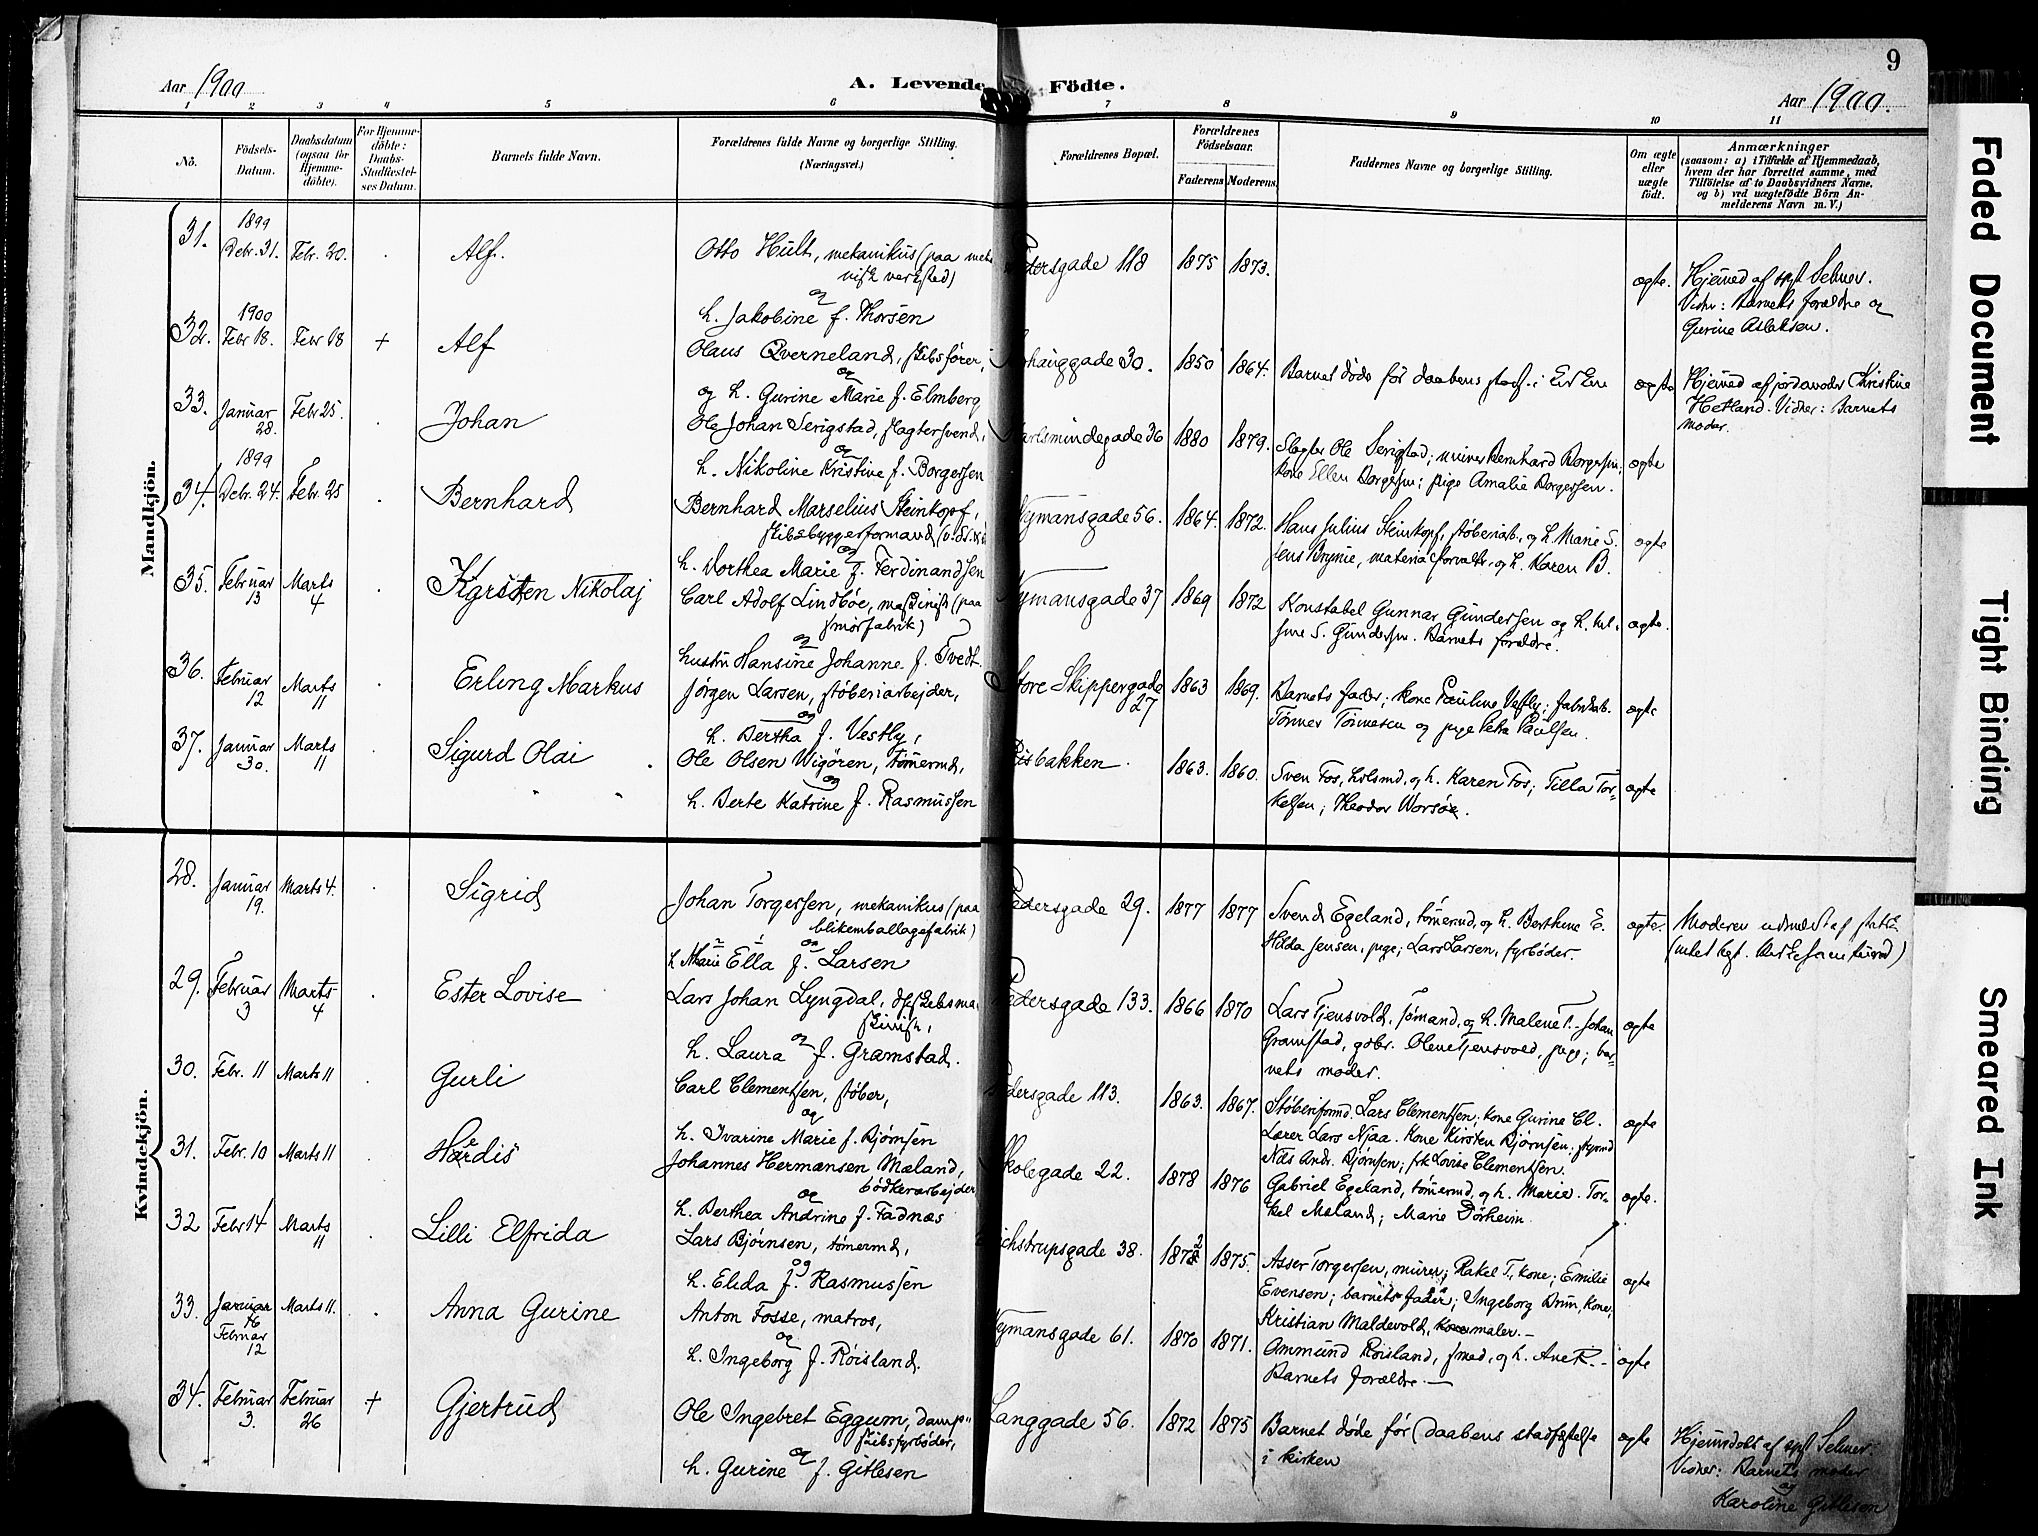 9
Aar 1900
A. Levende Födte.
Aar 1900.
1 2 3 4 5 6 7 8 9 10 11
No.
Födsels-
Datum.
Daabsdatum
(ogsaa for
Hjemme-
döbte).
For Hjemme-
döbte:
Daabs-
Stadfæstel-
ses Datum.
Barnets fulde Navn.
Forældrenes fulde Navne og borgerlige Stilling.
(Næringsvei.)
Forældrenes Bopæl.
Forældrenes
Födselsaar.
Faderens
Moderens
Faddernes Navne og borgerlige Stilling.
Om ægte
eller
uægte
födt.
Anmærkninger
(saasom: a) i Tilfælde af Hjemmedaab,
hvem der har forrettet samme, med
Tilföielse af to Daabsvidners Navne,
og b) ved uægtefödte Börn An-
melderens Navn m. V.)
Mandkjön.
31. 1899
Debr. 31. Febr. 20. Alf. Otto Hult, mekanikus (paa
verksted)
og
h. Jakobine f. Thorsen
dersgade 118 1875 1873. ægte. Hjemmed af
Vidner: Barnets forældre og
Gurine Aslaksen.
32. 1900
Febr 18. Febr 18 + Alf Olaus Qverneland, skibsfører,
og
og h. Gurine Marie f. Elmberg
haüggade 30. 1850 1864. Barnet døde før daabens stadf. i kirken ægte Hjemmed af jordmoder Kristine
Hetland. Vidner: Barnets
moder.
33. Januar
28. Febr 25. Johan Ole Johan Serigstad, slagtersvend,
og
h. Nikoline Kristine f. Borgersen
Karlsmindegade 36 1880 1879. Slagter Ole Serigstad; murer Bernhard Borgersen,
kone Ellen Borgersen; pige Amalie Borgersen. ægte
34. 1899
Debr. 24. Febr. 25 Bernhard Bernhard Marselius Steinkopf,
skibsbyggerformand
og
h. Dorthea Marie f. Ferdinandsen
Nymansgade 56. 1864. 1872. Hans Julius Steinkopf, støberiarb., og h. Marie S.
Jens Brynie, materialforvalter, og h. Karen B. ægte
35. Februar
13 Marts
4 Karsten Nikolaj Carl Adolf Lindbøe, maskinist (paa
smørfabrik)
og
hustru Hansine Johanne f. Tvedt.
Nymansgade 37 1869 1872 Konstabel Gunnar Gundersen og h.
S. Gundersen. Barnets forældre. ægte.
36. Februar
12 Marts
11 Erling Markus Jørgen Larsen, støberiarbejder,
og
h. Bertha f. Vestly,
Store Skippergade
27 1863 1869. Barnets fader; kone Pauline Vestly; fabrikarb.
Tønnes Tønnesen og pige Petra Paulsen. ægte
37. Januar
30. Marts
11 Sigurd Olai Ole Olsen Wigøren, tømermd,
og
h. Berte Katrine f. Rasmussen
Risbakken. 1863. 1860. Sven Fos, losmd, og h. Karen Fos; Tilla Tor-
kelsen; Theodor Worsøe. ægte
Kvindekjön.
28. Januar
19. Marts 4. Sigrid Johan Torgersen, mekanikus (paa
blikemballagefabrik)
og
h. Marie Ella f. Larsen
Pedersgade 29. 1877 1877 Svend Egeland, tømermd, og h. Berthine E.
Hilda Jensen, pige; Lars Larsen, fyrbøder. ægte. Moderen udmeldt af statsk.
29. Februar
3 Marts
4 Ester Lovise Lars Johan Lyngdal, dskibsma-
skinist,
og
h. Laura f. Gramstad.
Pedersgade 133. 1866 1870 Lars Tjensvold, sømand, og h. Malene T. Johan
Gramstad, gdbr. Oline Tjensvold, pige; bar-
nets moder. ægte
30. Febr. 11 Marts 11 Gurli Carl Clementsen, støber,
og
h. Ivarine Marie f. Bjørnsen
Pedersgade 113. 1863. 1867. Støberiformd. Lars Clementsen; kone Gurine Cl.
Lærer Lars Njaa. Kone Kirsten Bjørnsen; styrmd
Nils Andr. Bjørnsen; frk Lovise Clementsen. ægte
31. Febr. 10 Marts 11 Herdis Johannes Hermansen Mæland,
bødkerarbejder
og
h. Berthea Andrine f. Fadnæs
Skolegade 22. 1878 1876 Gabriel Egeland, tømermd, og h. Marie. Tor-
kel Mæland; Marie Dørheim. ægte.
32 Febr 14 Marts
11 Lilli Elfrida Lars Bjørnsen, tømermd,
og
h. Elida f. Rasmussen
chstrupsgade 38. 1872 1875. Asser Torgersen, murer; Rakel T., kone; Emilie
Evensen; barnets fader; Ingeborg Brun, kone,
Kristian Maldevold, kone maler. ægte
33. Januar
16
Februar
12 Marts 11. Anna Gurine Anton Fosse, matros,
og
h. Ingeborg f. Røisland.
Nymansgade 61. 1870 1871. Ammund Røisland, smed, og h. Ane R.
Barnets forældre ægte
34. Februar
3. Februar
26 + Gjertrud Ole Ingebret Eggum, damp-
skibsfyrbøder,
og
h. Gurine f. Gitlesen
Langgade 56. 1872 1875 Barnet døde før daabens stadfæstelse
i kirken ægte Hjemmedøbt af spst Selmer
Vidner: Barnets moder
og
Karoline Gitlesen
Faded Document
Tight Binding
Smeared Ink